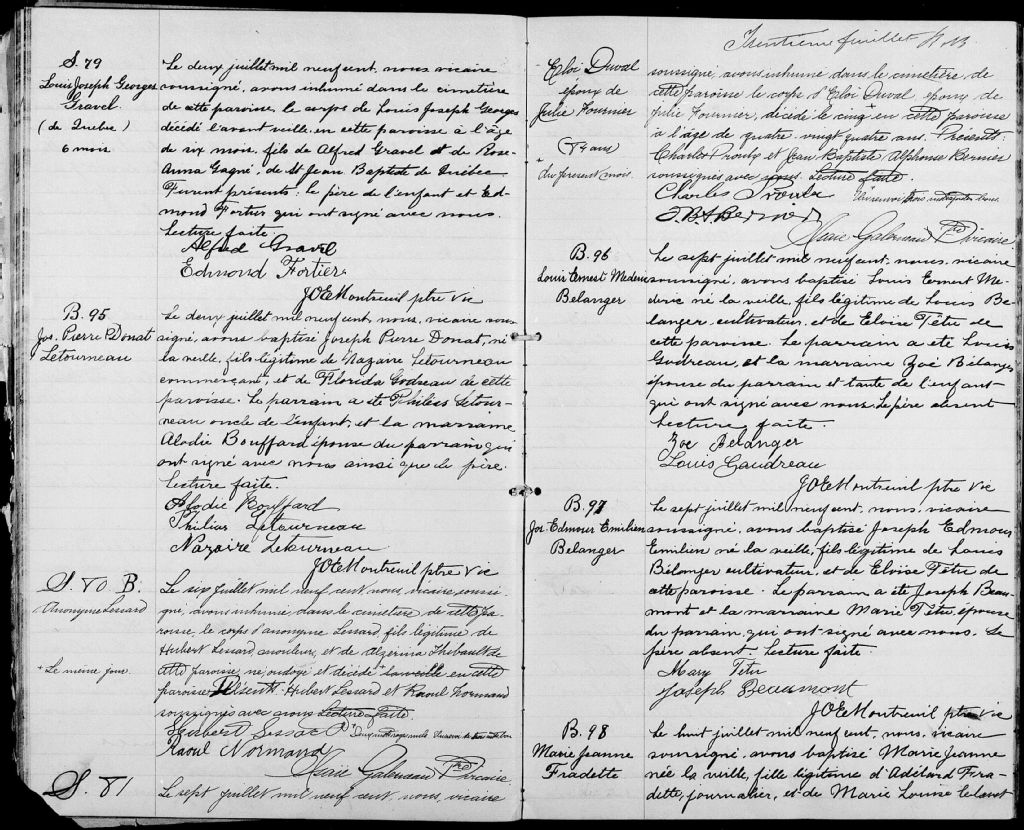 S. 79
Louis Joseph Georges
Gravel
(de Quebec)
6 mois
Le deux juillet mil neuf cent, nous, vicaire
soussigné, avons inhumé dans le cimetière
de cette paroisse, le corps de Louis Joseph Georges
décédé l'avant veille, en cette paroisse à l'âge
de six mois, fils de Alfred Gravel et de Rose-
Anna Gagné, de St Jean Baptiste de Québec
Furent présents: le père de l'enfant et Ed-
mond Fortier qui ont signé avec nous.
Lecture faite.
Alfred Gravel
Edmond Fortier
JOE Montreuil ptre vic
B. 95
Jos. Pierre Donat
Letourneau
Le deux juillet mil neuf cent, nous, vicaire sous-
signé, avons baptisé Joseph Pierre Donat, né
la veille, fils légitime de Nazaire Letourneau
commerçant, et de Florida Godreau de cette
paroisse. Le parrain a été Philias Letour-
neau oncle de l'enfant, et la marraine
Alodie Bouffard épouse du parrain qui
ont signé avec nous ainsi que le père.
Lecture faite.
Alodie Bouffard
Philias Letourneau
Nazaire Letourneau
JOE Montreuil ptre vic
S. 80 B.
Anonyme Lessard
+ Le même jour.
Le six juillet mil neuf cent, nous, vicaire soussi-
gné, avons inhumé dans le cimetière de cette pa-
roisse, le corps d'anonyme Lessard, fils légitime de
Hubert Lessard, mouleur, et de Alzerina Thibault de
cette paroisse, né, ondoyé et décédé + la veille en cette
paroisse Présents: Hubert Lessard et Raoul Normand
soussignés avec nous Lecture faite.
Hubert Lessard
Raoul Normand
Ptre Vicaire
S. 81
Le sept juillet mil neuf cent, nous, vicaire
Trentième feuillet
Eloi Duval
époux de
Julie Fournier
84 ans
+
du présent mois.
soussigné, avons inhumé dans le cimetière de
cette paroisse le corps d'Eloi Duval, époux de
Julie Fournier, décédé le cinq + en cette paroisse
à l'âge de quatre vingt quatre ans. Présents:
Charles Proulx et Jean Baptiste Alphonse Bernier
soussignés avec nous. Lecture faite.
Charles Proulx
J.B.A. Bernier
Ptre Vicaire
B. 96
Louis Ernest Mederic
Belanger
Le sept juillet mil neuf cent, nous, vicaire
soussigné, avons baptisé Louis Ernest Me-
deric né la veille, fils légitime de Louis Be-
langer, cultivateur, et de Eloise Têtu de
cette paroisse. Le parrain a été Louis
Godreau, et la marraine Zoé Bélanger
épouse du parrain et tante de l'enfant
qui ont signé avec nous. Le père absent
Lecture faite.
Zoe Belanger
Louis Gaudreau
JOE Montreuil ptre vic
B. 97
Jos. Edmour Emilien
Belanger
Le sept juillet mil neuf cent, nous, vicaire
soussigné, avons baptisé Joseph Edmour
Emilien né la veille, fils légitime de Louis
Bélanger cultivateur, et de Eloise Têtu de
cette paroisse. Le parrain a été Joseph Beau-
mont et la marraine Marie Têtu, épouse
du parrain, qui ont signé avec nous. Le
père absent. Lecture faite.
Mary Tetu
Joseph Beaumont
JOE Montreuil ptre vic
B. 98
Marie Jeanne
Fradette
Le huit juillet mil neuf cent, nous, vicaire
soussigné, avons baptisé Marie Jeanne
née la veille, fille légitime d'Adélard Fra-
dette, journalier, et de Marie Louise